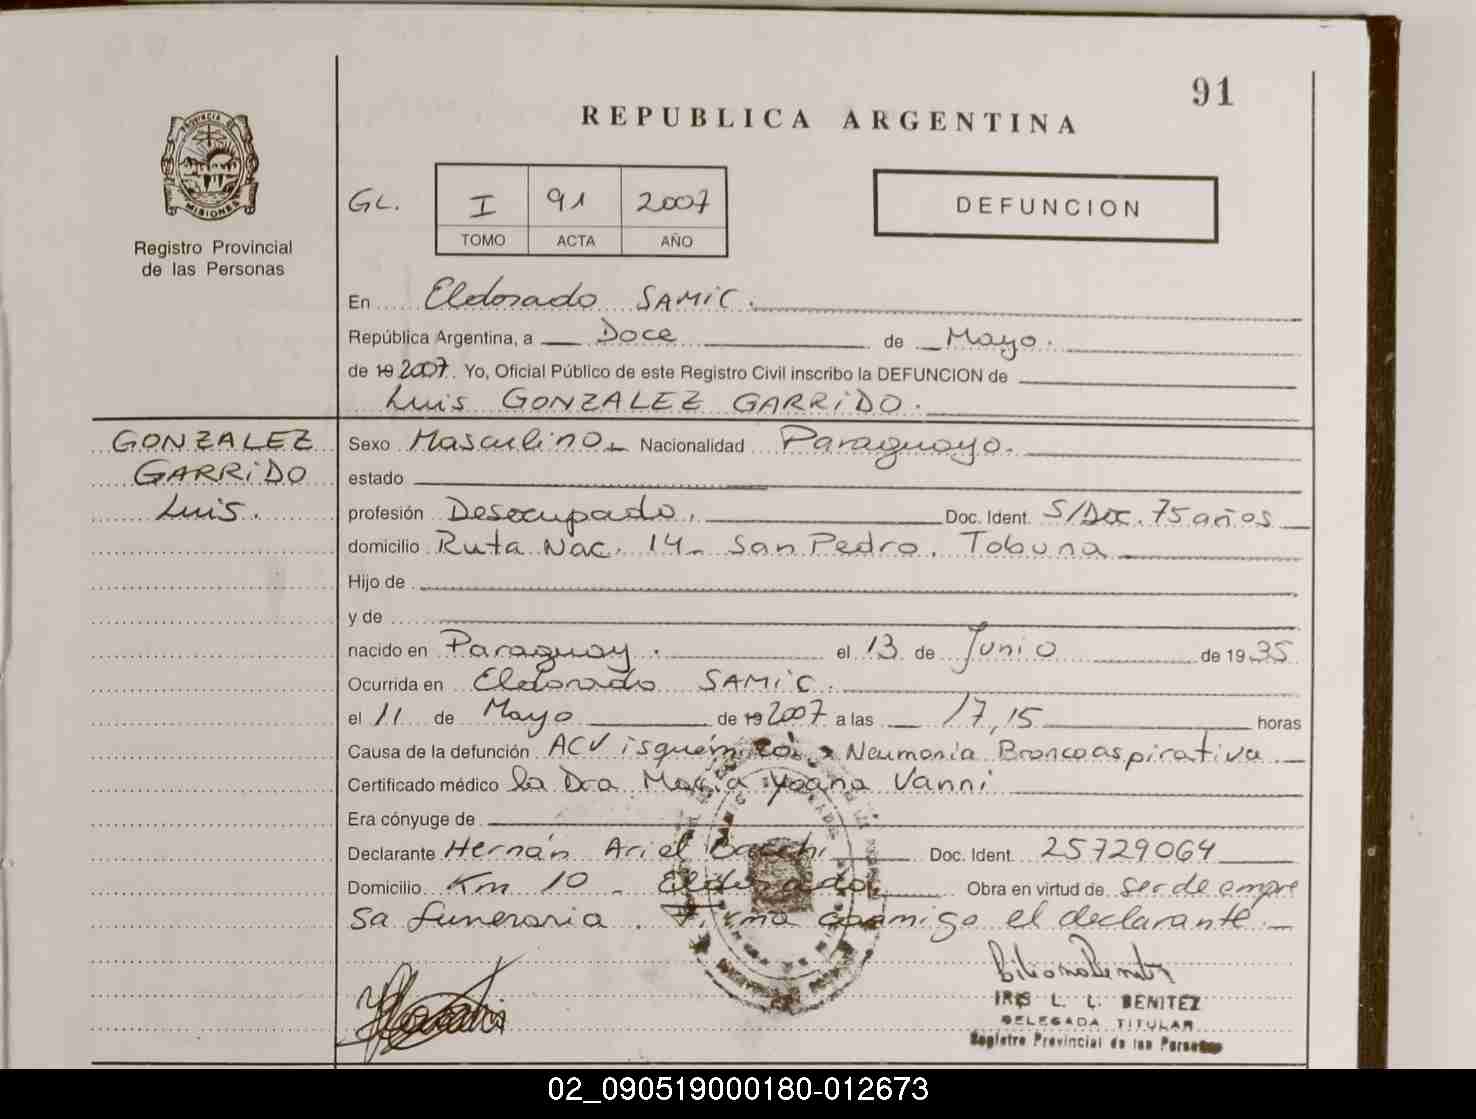 91
REPUBLICA ARGENTINA
PROVINCIA DE
MISIONES
Registro Provincial
de las Personas
GL. I 91 2007
TOMO ACTA AÑO
DEFUNCION
En Eldorado SAMIC.
República Argentina, a Doce de Mayo.
de 19 2007. Yo, Oficial Público de este Registro Civil inscribo la DEFUNCION de
Luis GONZALEZ GARRIDO.
GONZALEZ
GARRIDO
Luis.
Sexo Masculino Nacionalidad Paraguayo.
estado
profesión Desocupado. Doc. Ident. S/Doc. 75 años
domicilio Ruta Nac. 14 - San Pedro. Tobuna
Hijo de
y de
nacido en Paraguay. el 13 de Junio de 1935
Ocurrida en Eldorado SAMIC.
el 11 de Mayo de 19 2007 a las 17,15 horas
Causa de la defunción ACV isquémico, Neumonia Broncoaspirativa
Certificado médico la Dra. Maria Yoana Vanni
Era cónyuge de
Declarante Hernán Ariel Doc. Ident. 25729064
Domicilio Km 10 - Eldorado. Obra en virtud de ser de empre
sa funeraria. Firma conmigo el declarante
IRIS L. L. BENITEZ
DELEGADA TITULAR
Registro Provincial de las Personas
02_090519000180-012673